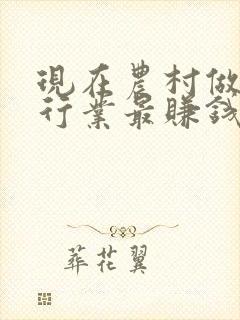 現在農村做
行業最賺錢
葬花翼